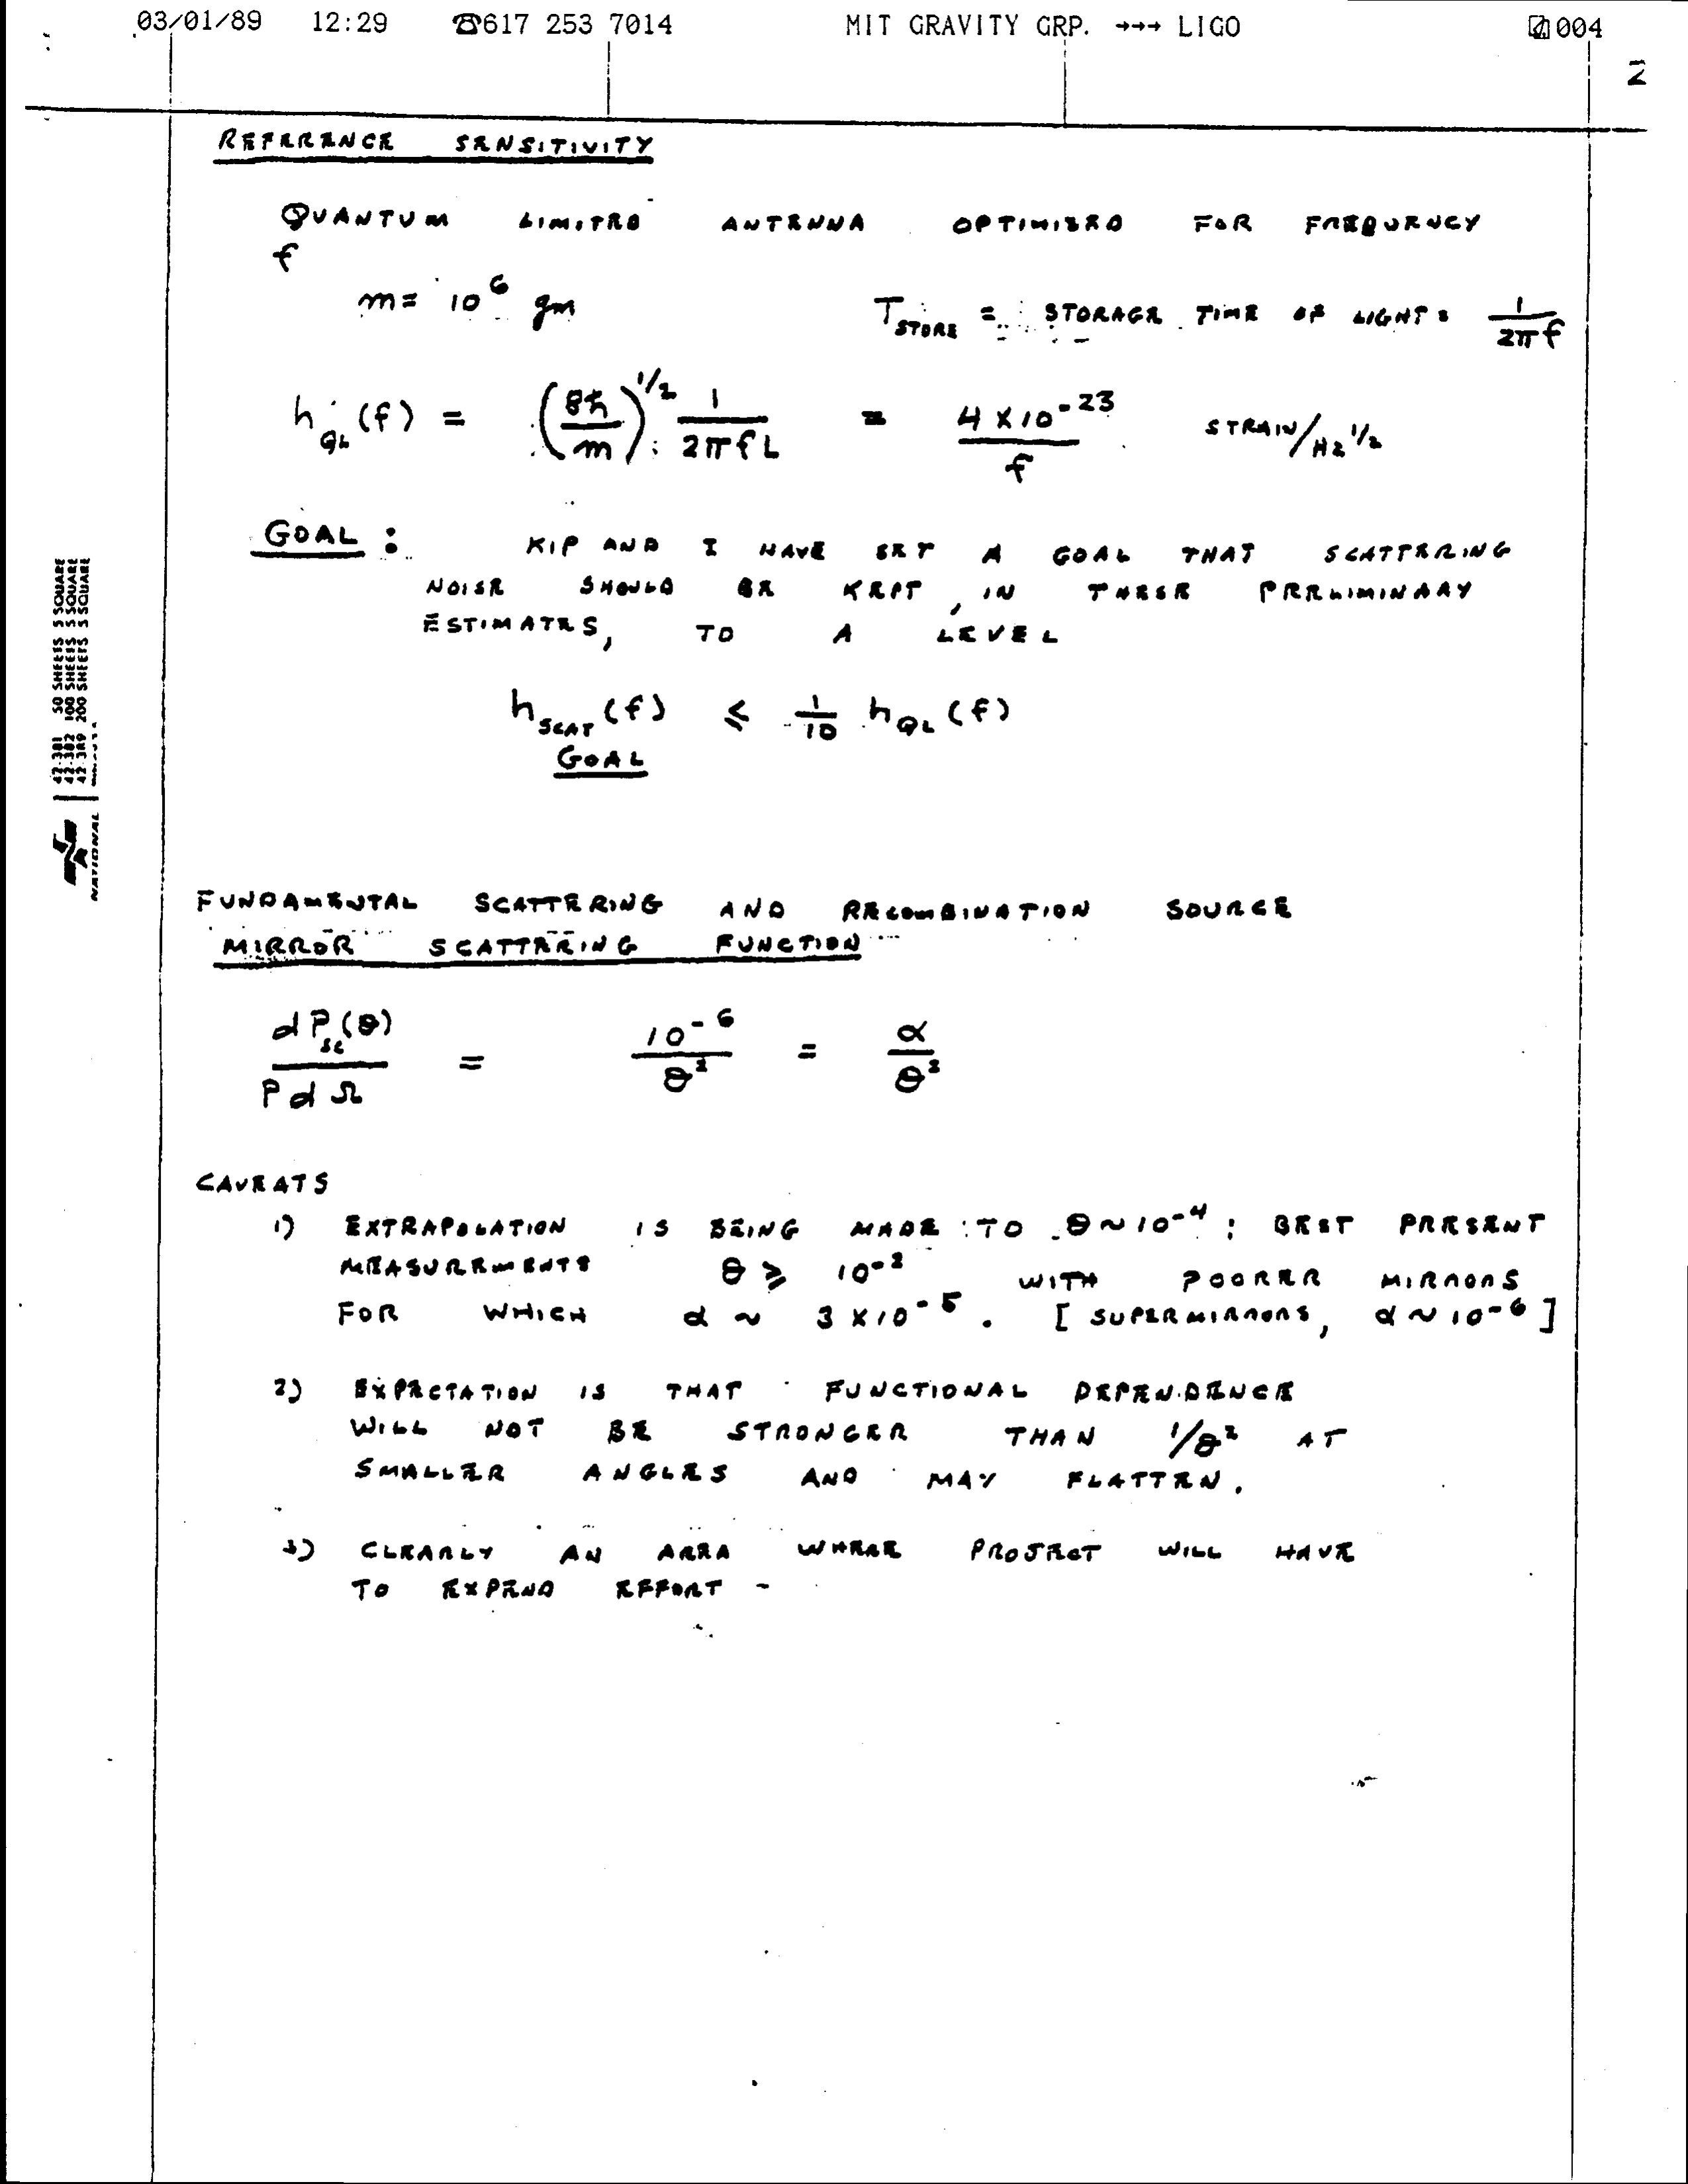 03/01/89 12:29 ☎617 253 7014 MIT GRAVITY GRP. →→→ LIGO 004
2
REFERENCE SENSITIVITY
QUANTUM LIMITED ANTENNA OPTIMIZED FOR FREQUENCY
f
m = 10^6 gm T_STORE = STORAGE TIME OF LIGHT = 1/(2πf)
h_QL(f) = (8ħ/m)^1/2 1/(2πfL) = 4 x 10^-23/f STRAIN/HZ^1/2
GOAL: KIP AND I HAVE SET A GOAL THAT SCATTERING
NOISE SHOULD BE KEPT, IN THESE PRELIMINARY
ESTIMATES, TO A LEVEL
h_SCAT(f) ≤ 1/10 h_QL(f)
GOAL
FUNDAMENTAL SCATTERING AND RECOMBINATION SOURCE
MIRROR SCATTERING FUNCTION
dP_sc(θ)/(P dΩ) = 10^-6/θ^2 = α/θ^2
CAVEATS
1) EXTRAPOLATION IS BEING MADE TO θ~10^-4; BEST PRESENT
MEASUREMENTS θ ≥ 10^-2 WITH POORER MIRRORS
FOR WHICH α ~ 3 x 10^-5. [SUPERMIRRORS, α ~ 10^-6]
2) EXPECTATION IS THAT FUNCTIONAL DEPENDENCE
WILL NOT BE STRONGER THAN 1/θ^2 AT
SMALLER ANGLES AND MAY FLATTEN.
3) CLEARLY AN AREA WHERE PROJECT WILL HAVE
TO EXPEND EFFORT -
42-381 50 SHEETS 5 SQUARE
42-382 100 SHEETS 5 SQUARE
42-389 200 SHEETS 5 SQUARE
NATIONAL